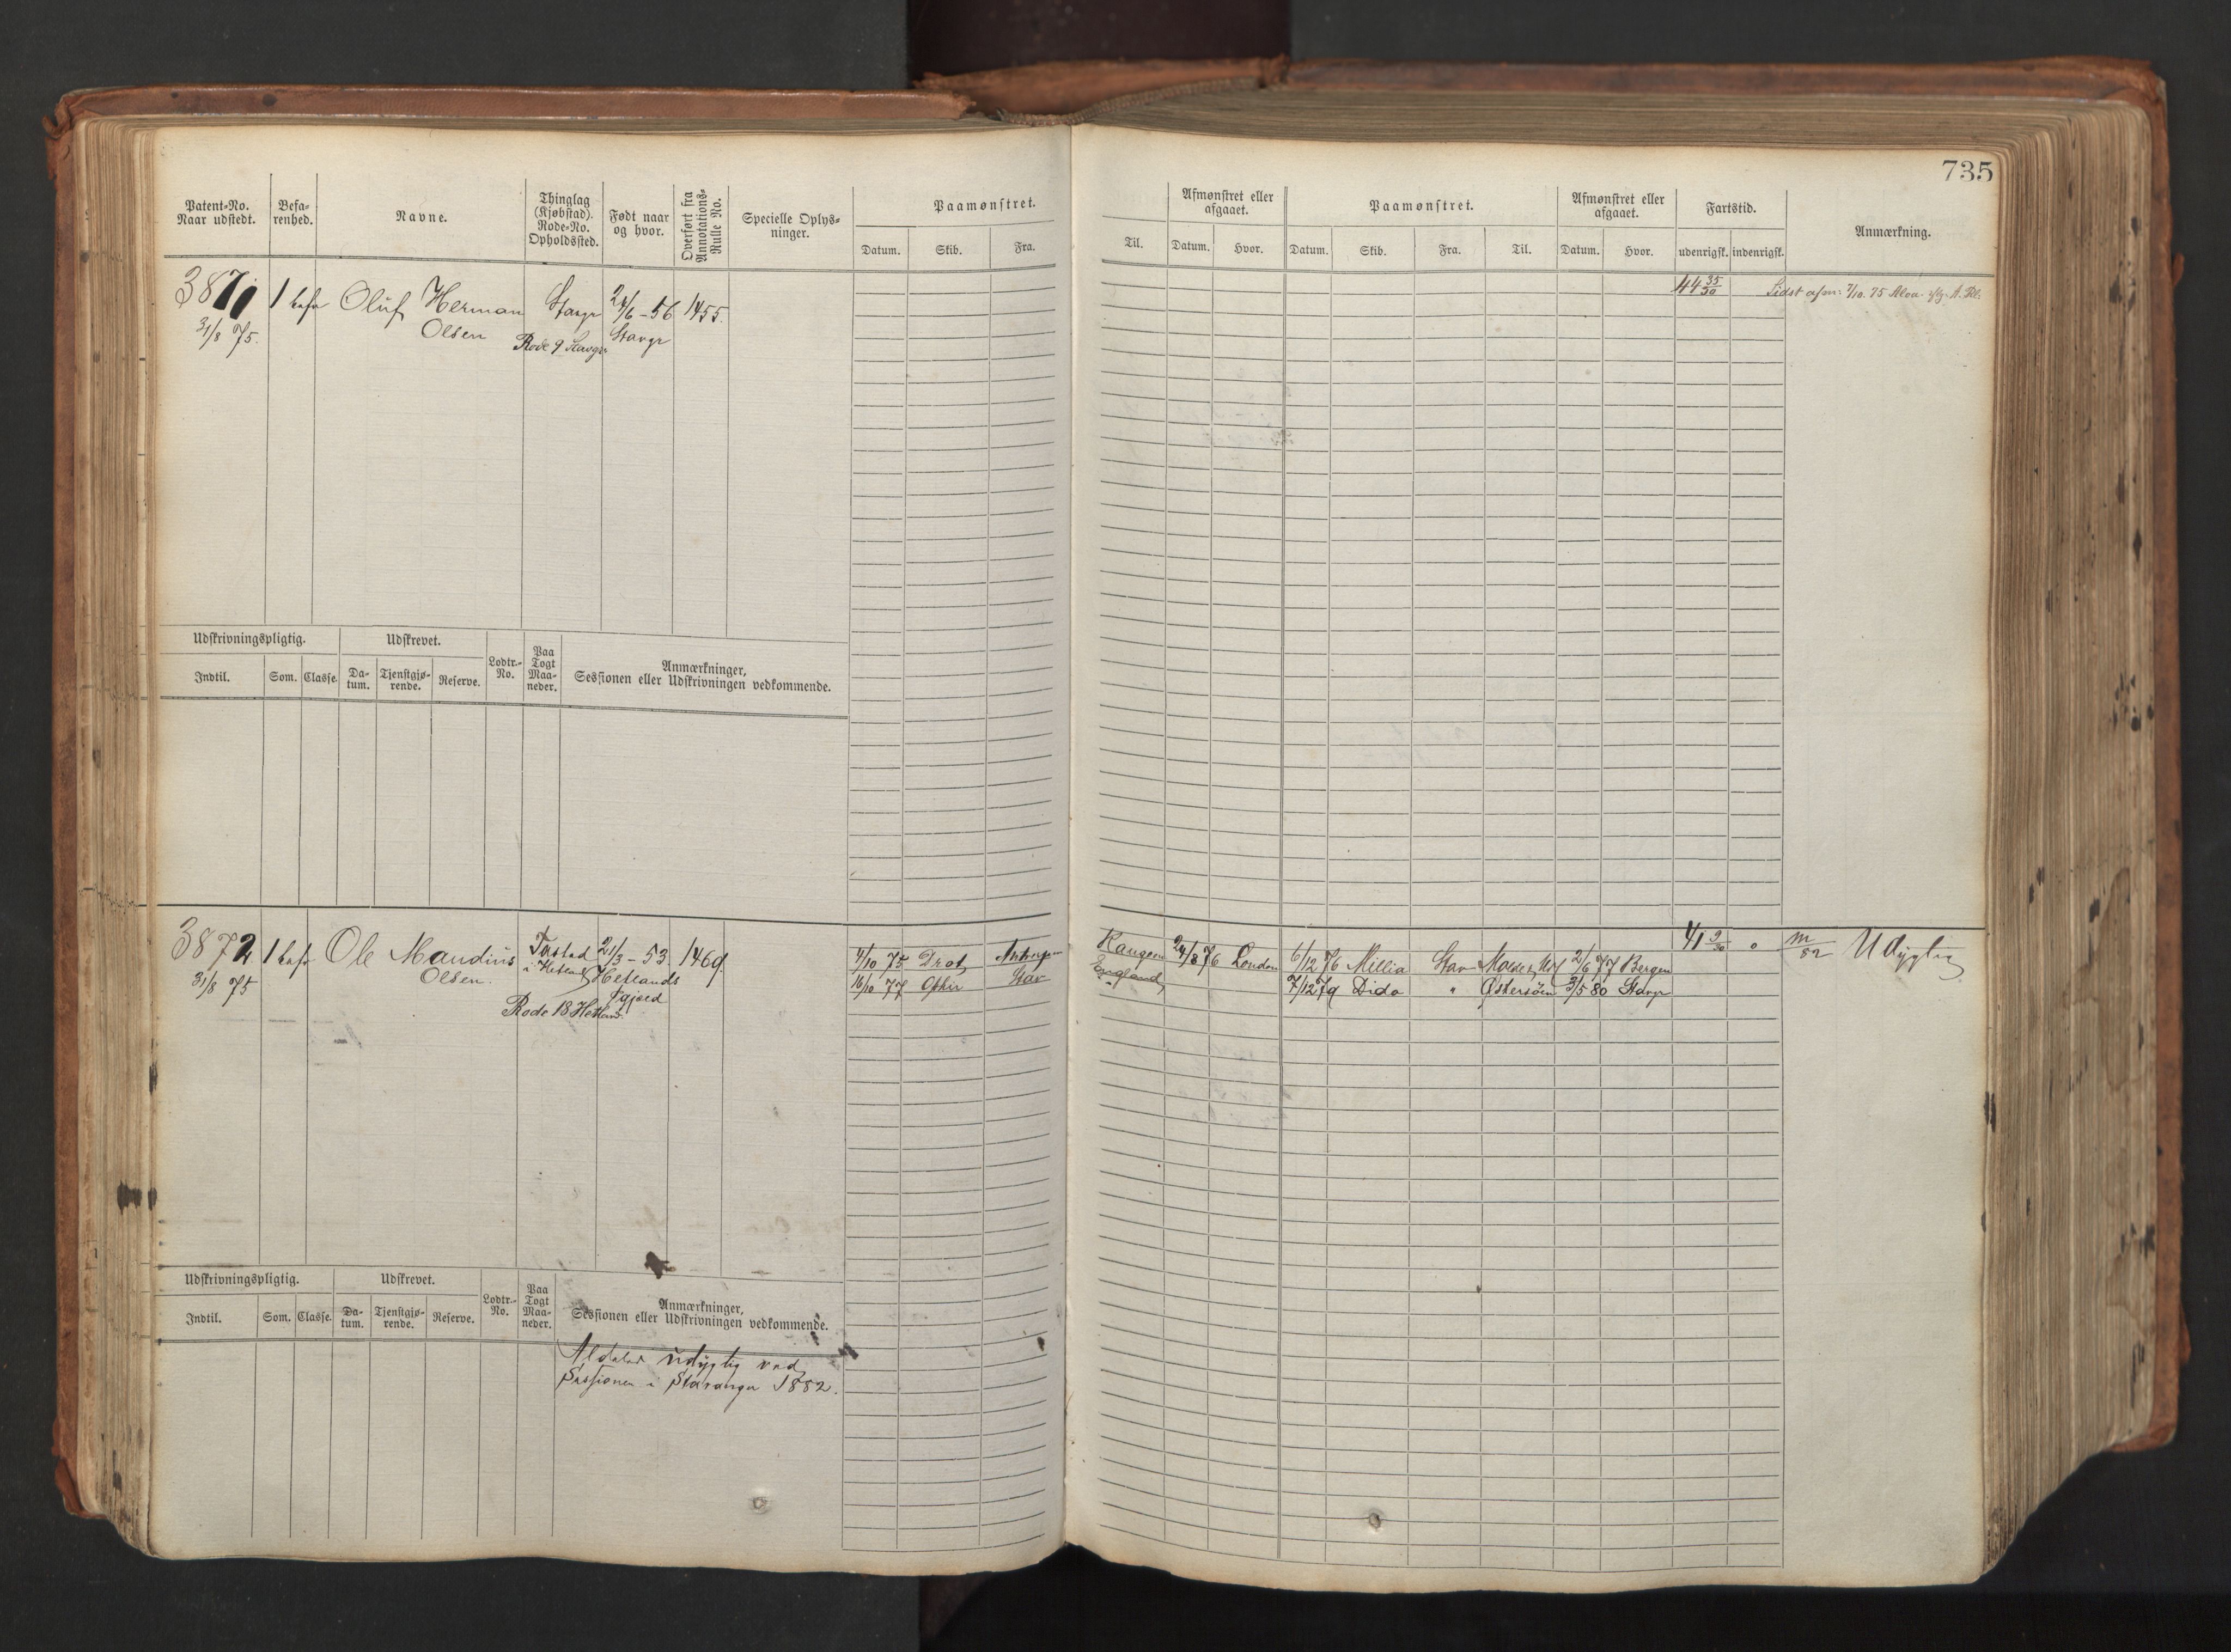 735
Patent-No. Naar udstedt.
Befa-renhed.
Navne.
Thinglag (Kjøbstad). Rode-No. Opholdssted.
Født naar og hvor.
Overført fra Annotations-Rulle No.
Specielle Oplys-ninger.
Paamønstret.
Datum. Skib. Fra.
Til.
Afmønstret eller afgaaet.
Datum. Hvor.
Paamønstret.
Datum. Skib. Fra. Til.
Afmønstret eller afgaaet.
Datum. Hvor.
Fartstid.
udenrigsk. indenrigsk.
Anmærkning.
3871 1 Oluf Herman Stavgr 24/6 - 56 1455.
31/8 75. Olsen Rode 9 Stavgr Stavgr
44 35/30 Sidst afm: 7/10. 75 Aloa
Udskrivningspligtig.
Indtil. Som. Classe.
Udskrevet.
Da-tum. Tjenstgjø-rende. Reserve.
Lodtr.-No.
Paa Togt Maa-neder.
Anmærkninger,
Sessionen eller Udskrivningen vedkommende.
3872 1 Ole Maudius Tastad 21/3 - 53 1469.
31/8 75 Olsen. Hetlands
Rode 18 Hetland.
4/10 75 Drot Antwerpen
16/10 77 Ophir Stav
24/8 76 London 6/12 76 Millia Stav Molde 2/6 77 Bergen 41 9/30 0
England 7/12 79 Dido " Østersøen 3/5 80 Stavgr
m/82 Udygtig
Udskrivningspligtig.
Indtil. Som. Classe.
Udskrevet.
Da-tum. Tjenstgjø-rende. Reserve.
Lodtr.-No.
Paa Togt Maa-neder.
Anmærkninger,
Sessionen eller Udskrivningen vedkommende.
udygtig ved
Sessionen i Stavanger 1882.